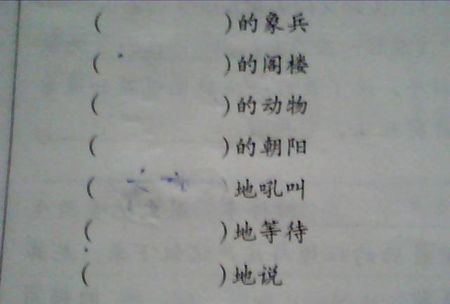 (　　　)的象兵
(　　　)的阁楼
(　　　)的动物
(　　　)的朝阳
(　　　)地吼叫
(　　　)地等待
(　　　)地说